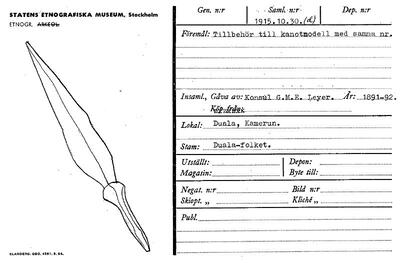 STATENS ETNOGRAFISKA MUSEUM, Stockholm
ETNOGR. ARKEOL.
Gen. n:r
Saml. n:r
Dep. n:r
1915.10.30.
Föremål: Tillbehör till kanotmodell med samma nr.
Insaml., Gåva av: Konsul G.M.E. Leyer. År: 1891-92.
Köp från:
Lokal: Duala, Kamerun.
Stam: Duala-folket.
Utställt:
Depon:
Magazin:
Byte till:
Negat. n:r
Bild n:r
Skiopt. „
Kliché „
Publ.